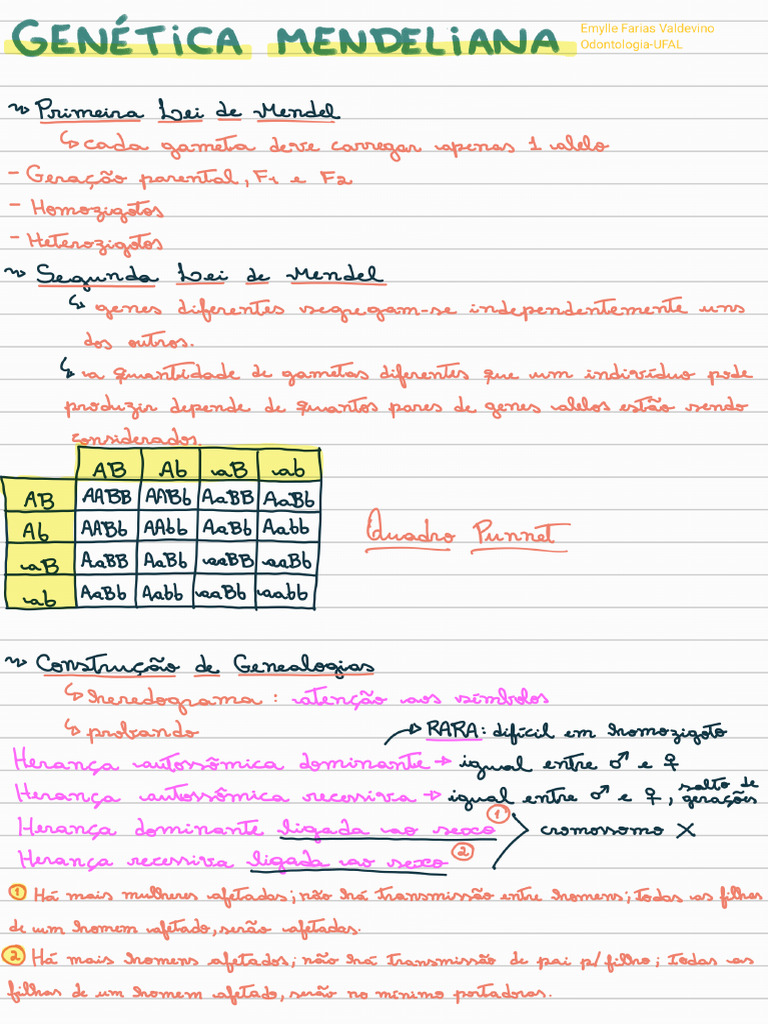 GENÉTICA MENDELIANA
Emylle Farias Valdevino
Odontologia-UFAL
Primeira Lei de Mendel
cada gameta deve carregar apenas 1 alelo
- Geração parental, F1 e F2
- Homozigotos
- Heterozigotos
Segunda Lei de Mendel
genes diferentes segregam-se independentemente uns
dos outros.
a quantidade de gametas diferentes que um indivíduo pode
produzir depende de quantos pares de genes alelos estão sendo
considerados.
AB Ab aB ab
AB AABB AABb AaBB AaBb
Ab AABb AAbb AaBb Aabb
aB AaBB AaBb aaBB aaBb
ab AaBb Aabb aaBb aabb
Quadro Punnet
Construção de Genealogias
heredograma: atenção aos símbolos
probando
→ RARA: difícil em homozigoto
Herança autossômica dominante → igual entre ♂ e ♀
Herança autossômica recessiva → igual entre ♂ e ♀, salto de gerações
Herança dominante ligada ao sexo ① > cromossomo X
Herança recessiva ligada ao sexo ②
① Há mais mulheres afetadas; não há transmissão entre homens; todas as filhas
de um homem afetado, serão afetadas.
② Há mais homens afetados; não há transmissão de pai p/ filho; todas as
filhas de um homem afetado, serão no mínimo portadoras.